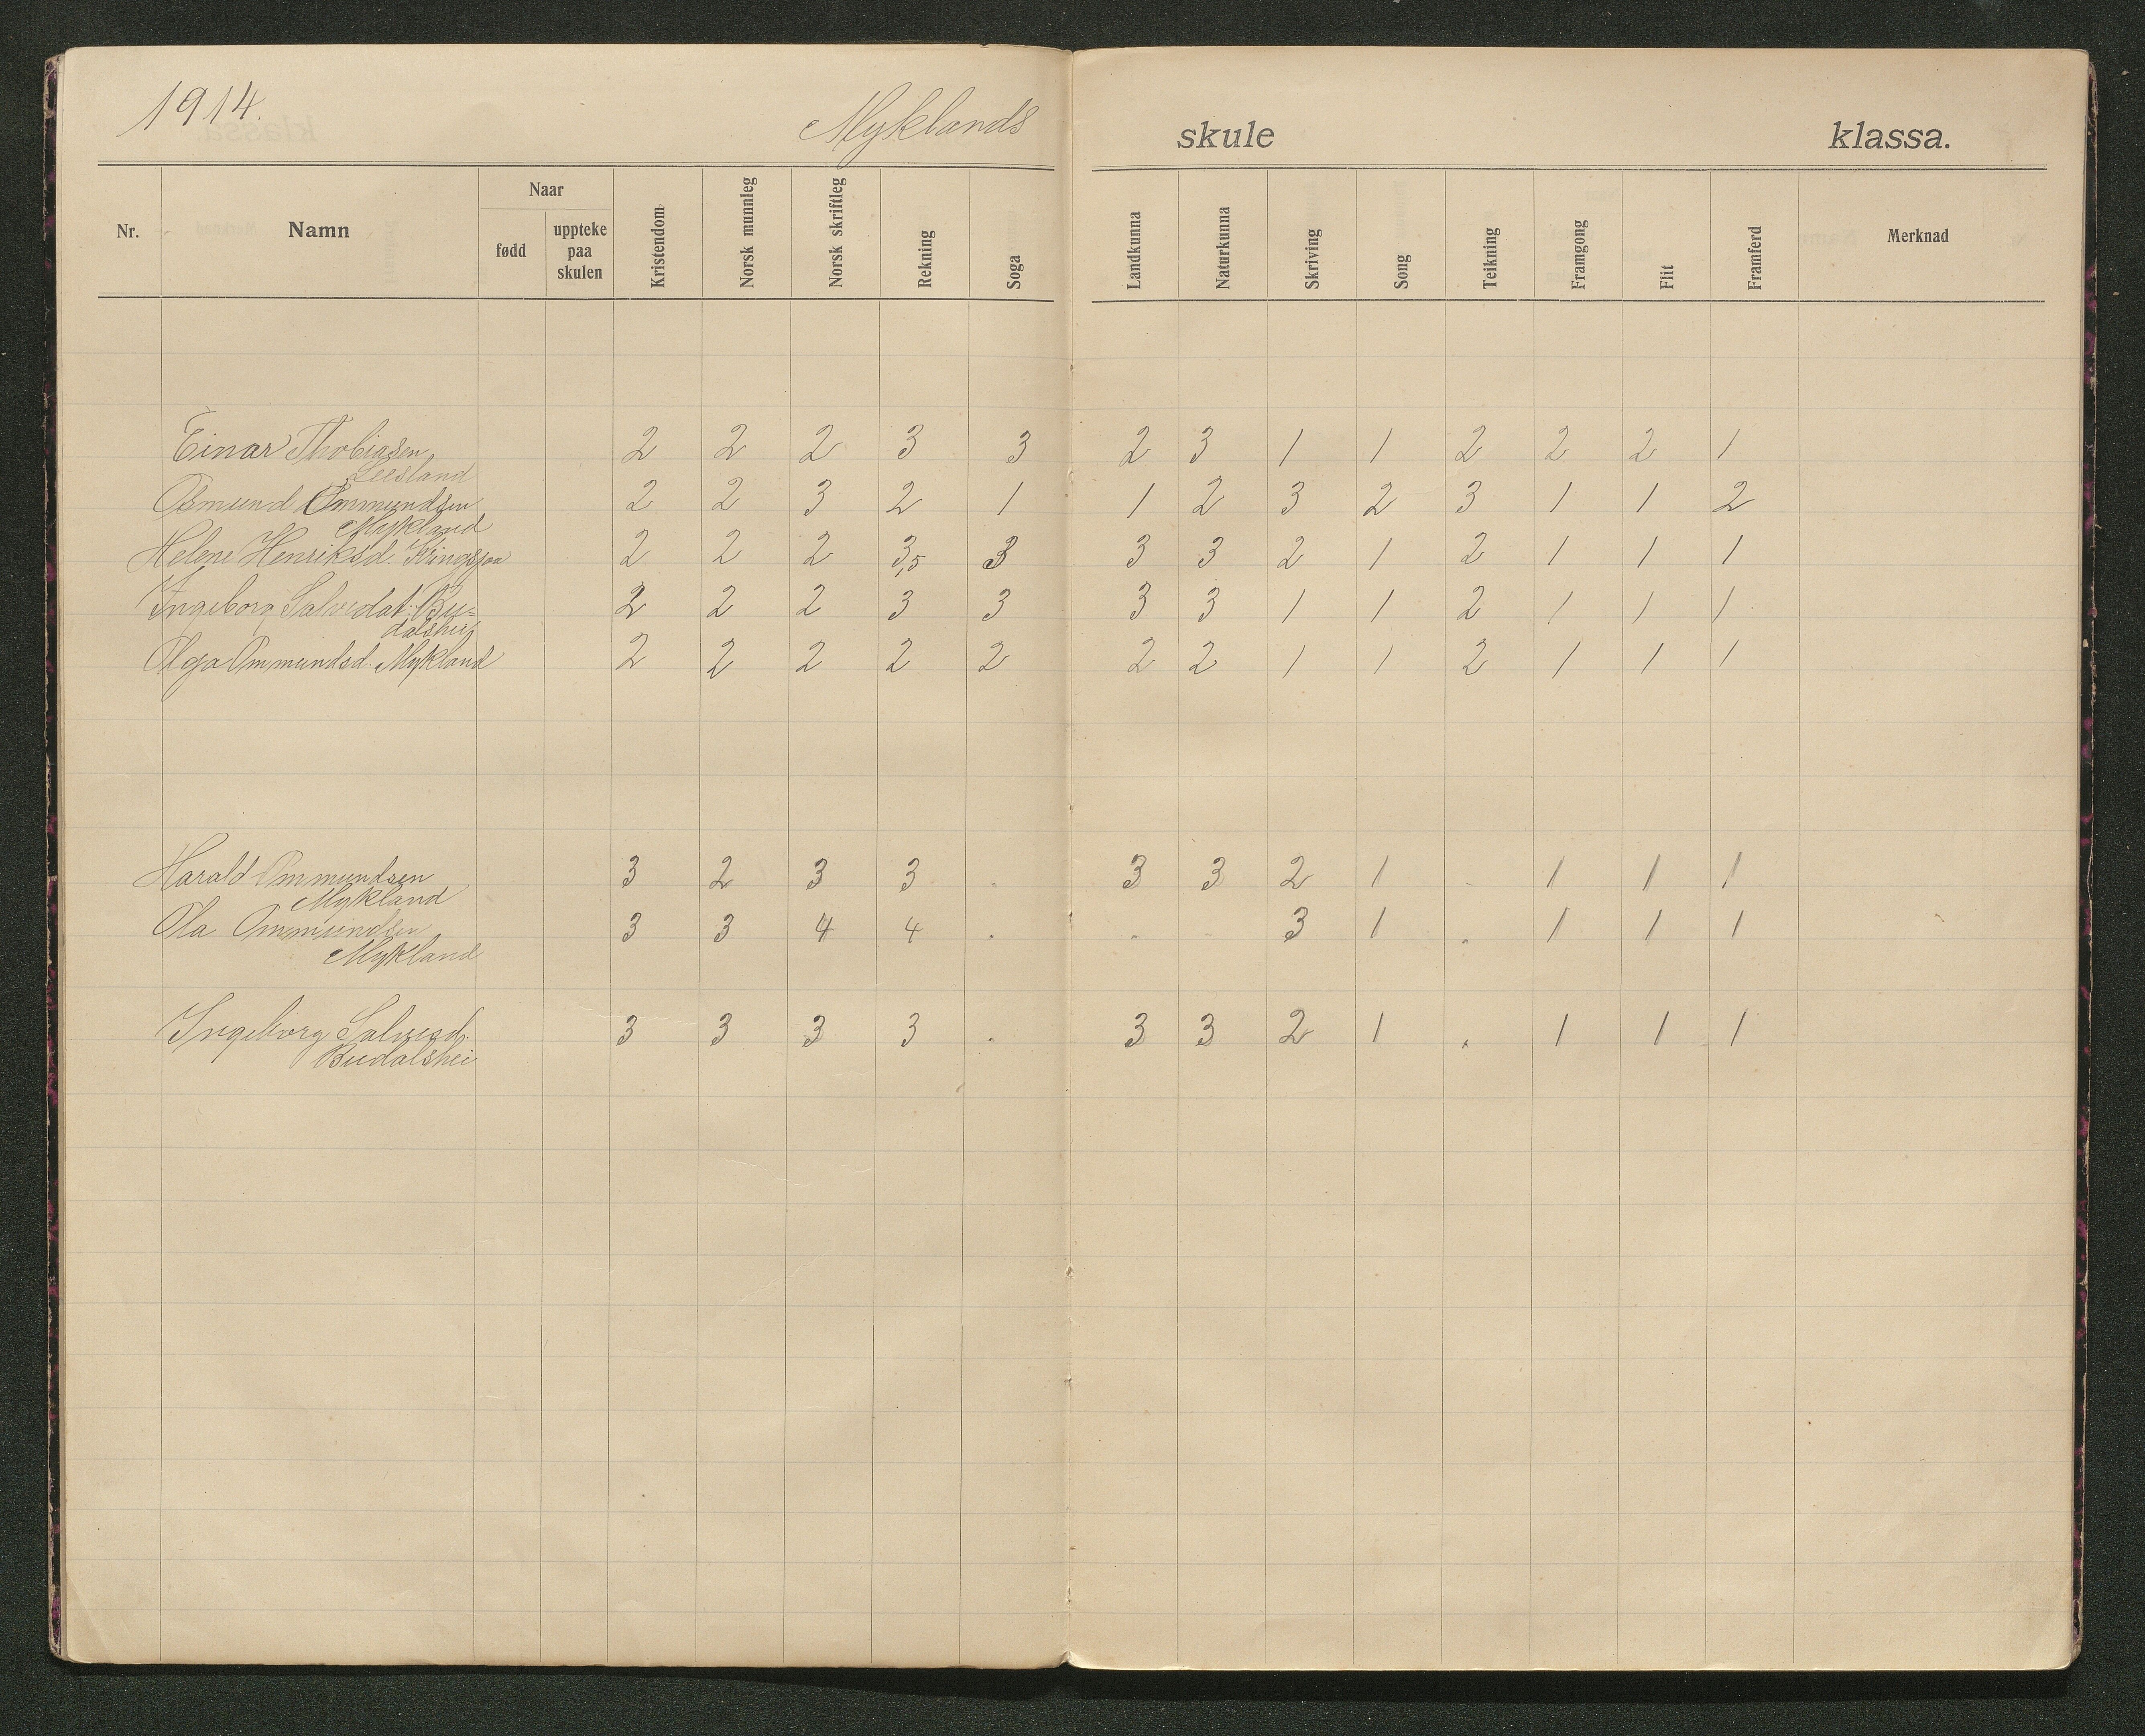 1914.
Myklands skule klassa.
Nr. Namn Naar fødd uppteke paa skulen Kristendom Norsk munnleg Norsk skriftleg Rekning Soga Landkunna Naturkunna Skriving Song Teikning Framgong Flit Framferd Merknad
Einar Thobiasen 2 2 2 3 3 2 3 1 1 2 2 2 1
Leesland
Osmund Ommundsen 2 2 3 2 1 1 2 3 2 3 1 1 2
Mykland
Helene Henriksd. 2 2 2 3,5 3 3 3 2 1 2 1 1 1
Ingeborg Salvedat. Bu= 2 2 2 3 3 3 3 1 1 2 1 1 1
dalshei
Olga Ommundsd. Mykland 2 2 2 2 2 2 2 1 1 2 1 1 1
Harald Ommundsen 3 2 3 3 . 3 3 2 1 - 1 1 1
Mykland
Ola Ommundsen 3 3 4 4 . . . 3 1 . 1 1 1
Mykland
Ingeborg Salvesd. 3 3 3 3 . 3 3 2 1 . 1 1 1
Budalshei